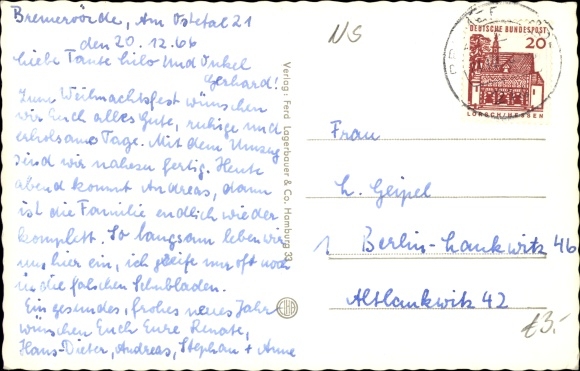 Bremervörde, Am Ostetal 21
den 20.12.66
Liebe Tante Lilo und Onkel
Gerhard!
Zum Weihnachtsfest wünschen
wir Euch alles Gute, ruhige und
erholsame Tage. Mit dem Umzug
sind wir nahezu fertig. Heute
abend kommt Andreas, dann
ist die Familie endlich wieder
komplett. So langsam leben wir
uns hier ein, ich greife nur oft noch
in die falschen Schubladen.
Ein gesundes, frohes neues Jahr
wünschen Euch Eure Renate,
Hans-Dieter, Andreas, Stephan + Anne
Verlag: Ferd. Lagerbauer & Co. Hamburg 33
EHB
NS
DEUTSCHE BUNDESPOST
20
LORSCH/HESSEN
Frau
L. Geipel
1 Berlin-Lankwitz 46
Altlankwitz 42
£3.-